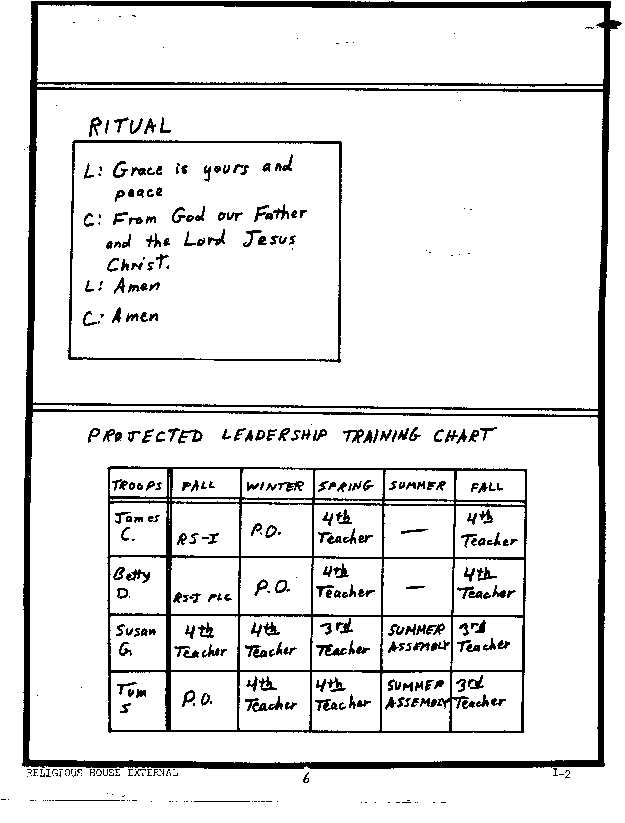 RITUAL
L: Grace is yours and
peace
C: From God our Father
and the Lord Jesus
Christ.
L: Amen
C: Amen
PROJECTED LEADERSHIP TRAINING CHART
TROOPS FALL WINTER SPRING SUMMER FALL
James C. RS-I P.O. 4th Teacher — 4th Teacher
Betty D. RS-I PLC P.O. 4th Teacher — 4th Teacher
Susan G. 4th Teacher 4th Teacher 3rd Teacher SUMMER ASSEMBLY 3rd Teacher
Tom S P.O. 4th Teacher 4th Teacher SUMMER ASSEMBLY 3rd Teacher
RELIGIOUS HOUSE EXTERNAL 6 I-2